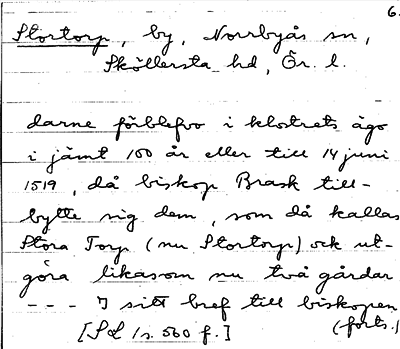 6.
Stortorp, by, Norrbyås sn,
Sköllersta hd, Ör. l.
darne förblefvo i klostrets ägo
i jämt 100 år eller till 14 juni
1519, då biskop Brask till-
bytte sig dem, som då kallas
Stora Torp (nu Stortorp) och ut-
göra likasom nu två gårdar
- - - I sitt bref till biskopen
[SL 1 s. 560 f.] (forts.)